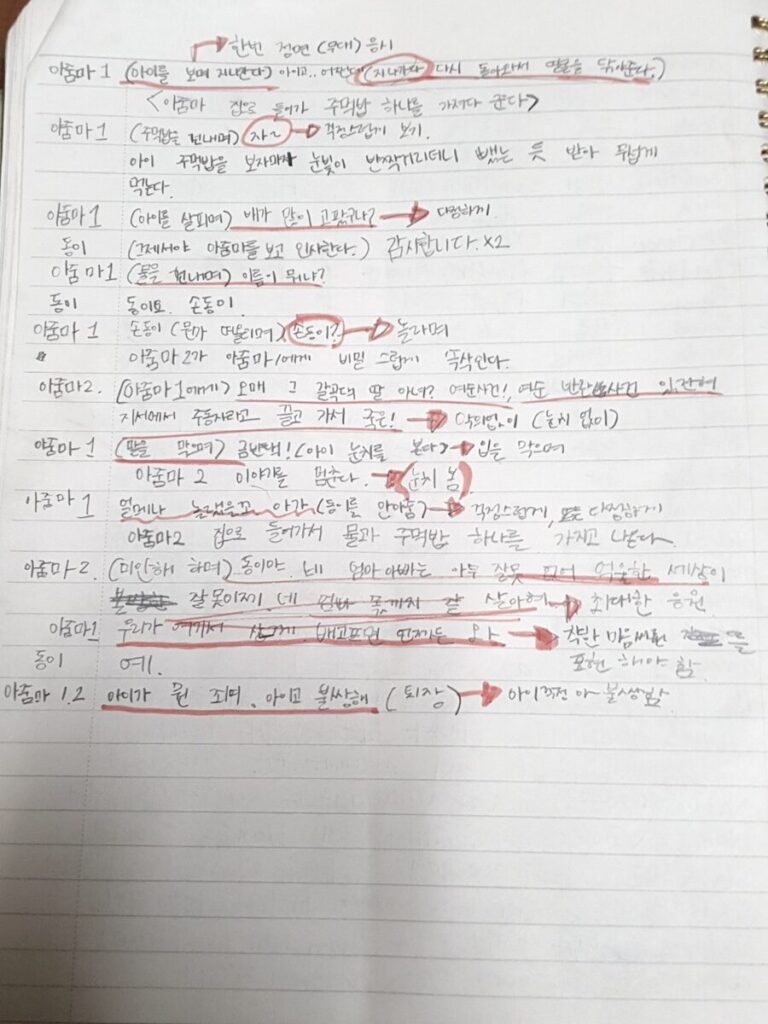 한번 정면 (무대) 응시
아줌마 1 (아이를 보며 지나간다) 아이고.. 어쩐대 (지나가다 다시 돌아와서 땀을 닦아준다.)
<아줌마 집으로 들어가 주먹밥 하나를 가져다 준다>
아줌마 1 (주먹밥을 건내며) 자~ 걱정스럽게 보기.
아이 주먹밥을 보자마자 눈빛이 반짝거리더니 뺏는 듯 받아 무섭게
먹는다.
아줌마 1 (아이를 살피며) 배가 많이 고팠구나? 다정하게
동이 (그제서야 아줌마를 보고 인사한다.) 감사합니다. X2
아줌마1 (물을 건내며) 이름이 뭐냐?
동이 동이요. 손동이.
아줌마 1 손동이 (뭔가 떠올리며) 손동이? 놀라며
아줌마 2가 아줌마 1에게 비밀 스럽게 속삭인다.
아줌마2. (아줌마1에게) 오매 그 갈곡댁 딸 아녀? 여순사건!, 여순 반란 사건 있잔혀
지서에서 주동자라고 끌고 가서 죽은! 악의없이 (눈치 없이)
아줌마 1 (말을 막으며) 금반댁! (아이 눈치를 본다) 입을 막으며
아줌마 2 이야기를 멈춘다. 눈치 봄
아줌마 1 얼메나 놀랬을꼬 아가 (동이를 안아줌) 걱정스럽게, 다정하게
아줌마2 집으로 들어가서 물과 주먹밥 하나를 가지고 나온다.
아줌마 2. (미안해 하며) 동이야. 네 엄마 아빠는 아무 잘못 없어 억울한 세상이
잘못이제. 네 몫까지 잘 살아혀 최대한 응원
아줌마1 우리가 여기서 배고프면 언제든 와 착한 마음씨를
동이 예. 표현 해야 함
아줌마 1.2 아이가 뭔 죄며. 아이고 불쌍해 (퇴장)